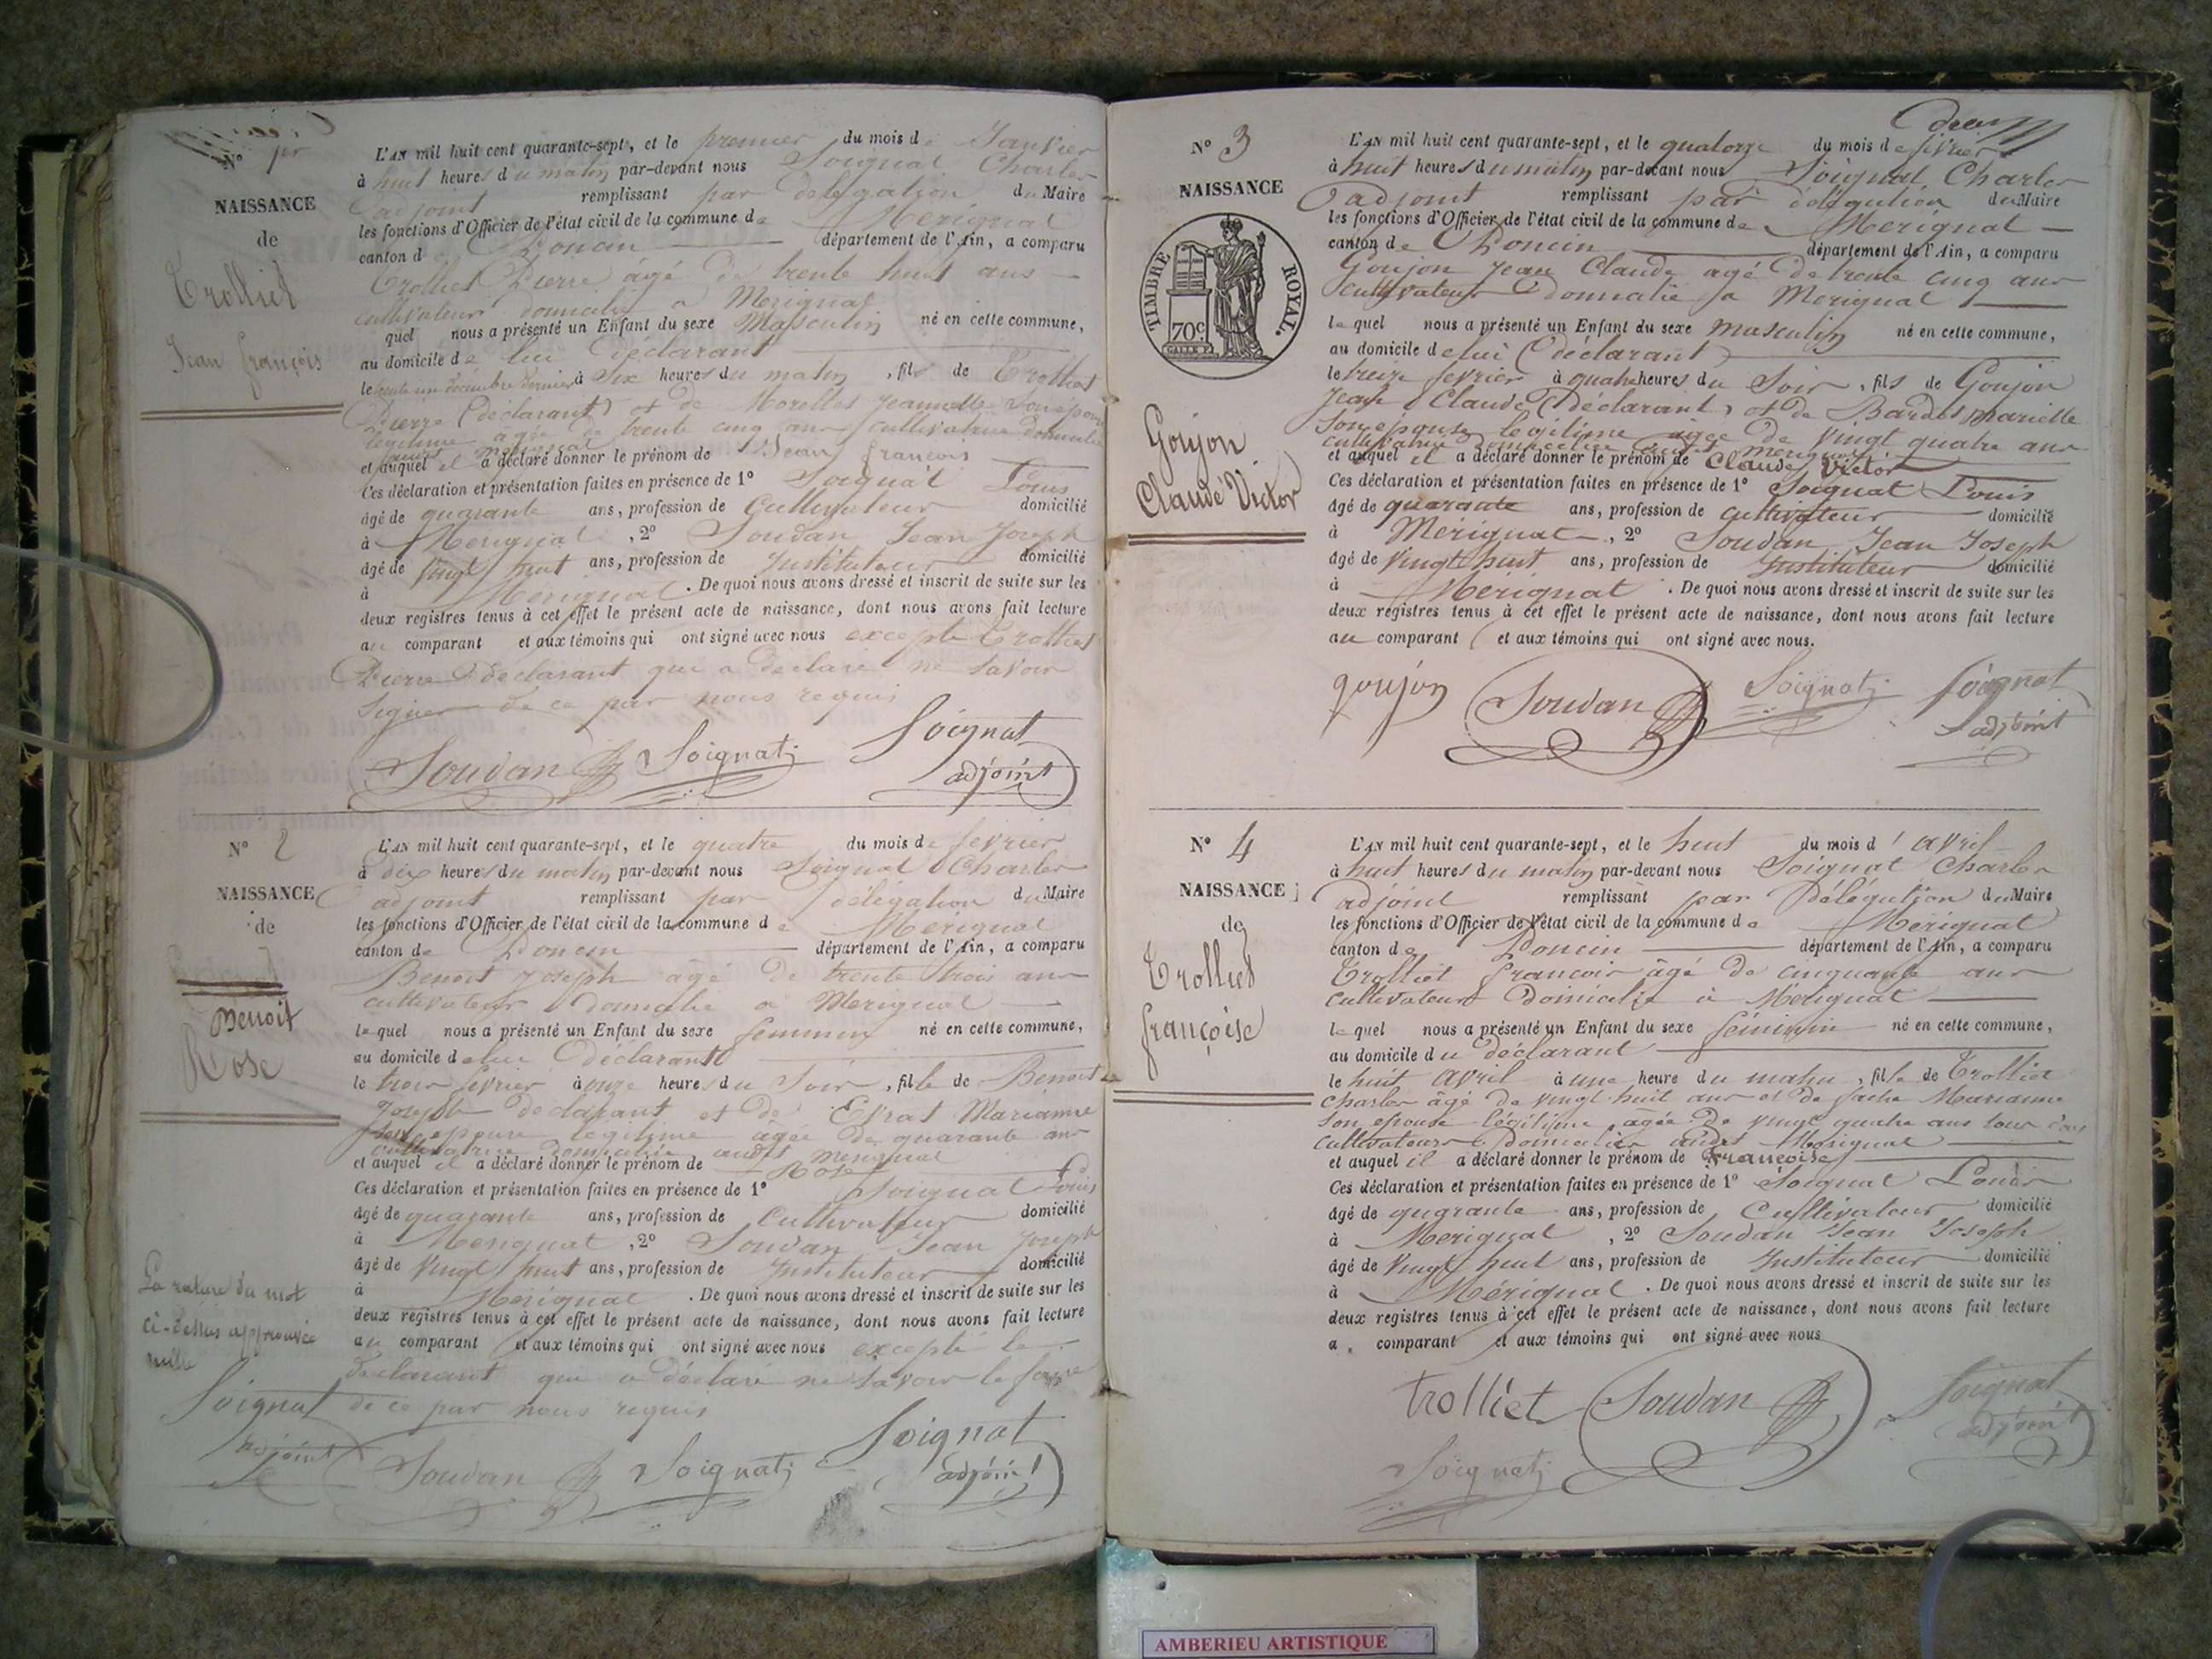 N° 1er
NAISSANCE
de
Trolliet
Jean françois
L'AN mil huit cent quarante-sept, et le premier du mois de Janvier
à huit heures du matin par-devant nous Soignat Charles
adjoint remplissant par délégation du Maire
les fonctions d'Officier de l'état civil de la commune de Merignat
canton de Poncin département de l'Ain, a comparu
Trolliet Pierre âgé de trente huit ans
cultivateur domicilié à Merignat
quel nous a présenté un Enfant du sexe Masculin né en cette commune,
au domicile de lui déclarant
le trente un décembre dernier à Six heures du matin, fils de Trolliet
Pierre (déclarant) et de Morellet Jeannette Son épouse
légitime âgée de trente cinq ans cultivatrice domiciliée
audit Merignat
et auquel il a déclaré donner le prénom de Jean françois
Ces déclaration et présentation faites en présence de 1° Soignat Louis
âgé de quarante ans, profession de Cultivateur domicilié
à Merignat, 2° Soudan Jean Joseph
âgé de vingt huit ans, profession de Instituteur domicilié
à Merignat. De quoi nous avons dressé et inscrit de suite sur les
deux registres tenus à cet effet le présent acte de naissance, dont nous avons fait lecture
au comparant et aux témoins qui ont signé avec nous excepté Trolliet
Pierre déclarant qui a déclaré ne Savoir
Signer de ce par nous requis
Soudan Soignat Soignat
adjoint
N° 2
NAISSANCE
de
Benoit
Rose
La rature du mot
ci-dessus approuvée
nulle
Soignat
adjoint
L'AN mil huit cent quarante-sept, et le quatre du mois de fevrier
à dix heures du matin par-devant nous Soignat Charles
adjoint remplissant par délégation du Maire
les fonctions d'Officier de l'état civil de la commune de Mérignat
canton de Poncin département de l'Ain, a comparu
Benoit Joseph âgé de trente trois ans
cultivateur domicilié à Merignat
lequel nous a présenté un Enfant du sexe féminin né en cette commune,
au domicile de lui déclarant
le trois fevrier à onze heures du Soir, fille de Benoit
Joseph déclarant et de Evrat Marianne
Son epouse legitime âgée de quarante ans
cultivatrice domiciliée audit Merignat
et auquel il a déclaré donner le prénom de Rose
Ces déclaration et présentation faites en présence de 1° Soignat Louis
âgé de quarante ans, profession de Cultivateur domicilié
à Merignat, 2° Soudan Jean Joseph
âgé de vingt huit ans, profession de Instituteur domicilié
à Merignat. De quoi nous avons dressé et inscrit de suite sur les
deux registres tenus à cet effet le présent acte de naissance, dont nous avons fait lecture
au comparant et aux témoins qui ont signé avec nous excepté le
declarant qui a déclaré ne Savoir le faire
de ce par nous requis
Soudan Soignat Soignat
adjoint
deux
N° 3
NAISSANCE
TIMBRE ROYAL.
70c.
Goujon
Claude Victor
L'AN mil huit cent quarante-sept, et le quatorze du mois de fevrier
à huit heures du matin par-devant nous Soignat Charles
adjoint remplissant par délégation du Maire
les fonctions d'Officier de l'état civil de la commune de Merignat
canton de Poncin département de l'Ain, a comparu
Goujon Jean Claude âgé de trente cinq ans
cultivateur domicilié à Merignat
lequel nous a présenté un Enfant du sexe masculin né en cette commune,
au domicile de lui (déclarant)
le treize fevrier à quatre heures du Soir, fils de Goujon
Jean Claude (déclarant) et de Bardet Mariette
Son épouse légitime âgée de vingt quatre ans
cultivatrice domiciliée audit Merignat
et auquel il a déclaré donner le prénom de Claude Victor
Ces déclaration et présentation faites en présence de 1° Soignat Louis
âgé de quarante ans, profession de cultivateur domicilié
à Mérignat, 2° Soudan Jean Joseph
âgé de vingt huit ans, profession de Instituteur domicilié
à Mérignat. De quoi nous avons dressé et inscrit de suite sur les
deux registres tenus à cet effet le présent acte de naissance, dont nous avons fait lecture
au comparant et aux témoins qui ont signé avec nous.
goujon Soudan Soignat Soignat
adjoint
N° 4
NAISSANCE
de
Trolliet
françoise
L'AN mil huit cent quarante-sept, et le huit du mois d'avril
à huit heures du matin par-devant nous Soignat Charles
adjoint remplissant par délégation du Maire
les fonctions d'Officier de l'état civil de la commune de Mérignat
canton de Poncin département de l'Ain, a comparu
Trolliet françois âgé de cinquante ans
cultivateur domicilié à Mérignat
lequel nous a présenté un Enfant du sexe féminin né en cette commune,
au domicile du déclarant
le huit Avril à une heure du matin, fille de Trolliet
Charles âgé de vingt huit ans et de Marianne
Son epouse légitime, âgée de vingt quatre ans tous deux
cultivateurs domiciliés audit Mérignat
et auquel il a déclaré donner le prénom de françoise
Ces déclaration et présentation faites en présence de 1° Soignat Louis
âgé de quarante ans, profession de Cultivateur domicilié
à Merignat, 2° Soudan Jean Joseph
âgé de vingt huit ans, profession de Instituteur domicilié
à Mérignat. De quoi nous avons dressé et inscrit de suite sur les
deux registres tenus à cet effet le présent acte de naissance, dont nous avons fait lecture
a comparant et aux témoins qui ont signé avec nous
trolliet Soudan Soignat
adjoint
Soignat
AMBERIEU ARTISTIQUE